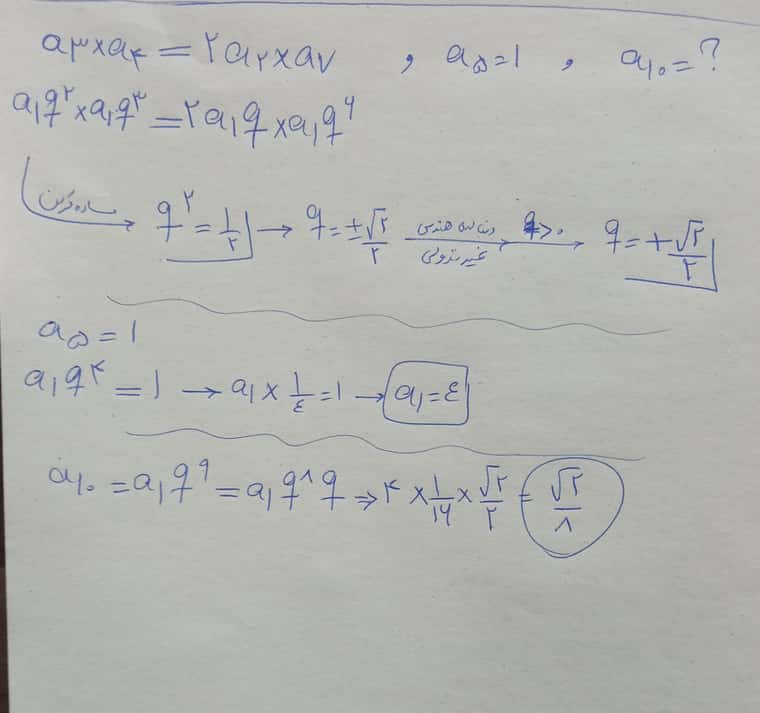 a۳×a۴ = ۲a۲×a۷ , a۵=۱ , a۱۰=?
a۱q^۲×a۱q^۳=۲a۱q×a۱q^۶
ساده کردن q^۲=۱/۲ → q=±√۲/۲ دنباله هندسی غیرنزولی q>۰ → q=+√۲/۲
a۵=۱
a۱q^۴=۱ → a۱×۱/٤=۱ → a۱=٤
a۱۰=a۱q^۹=a۱q^۸q ⇒ ۴×۱/۱۶×√۲/۲=√۲/۸